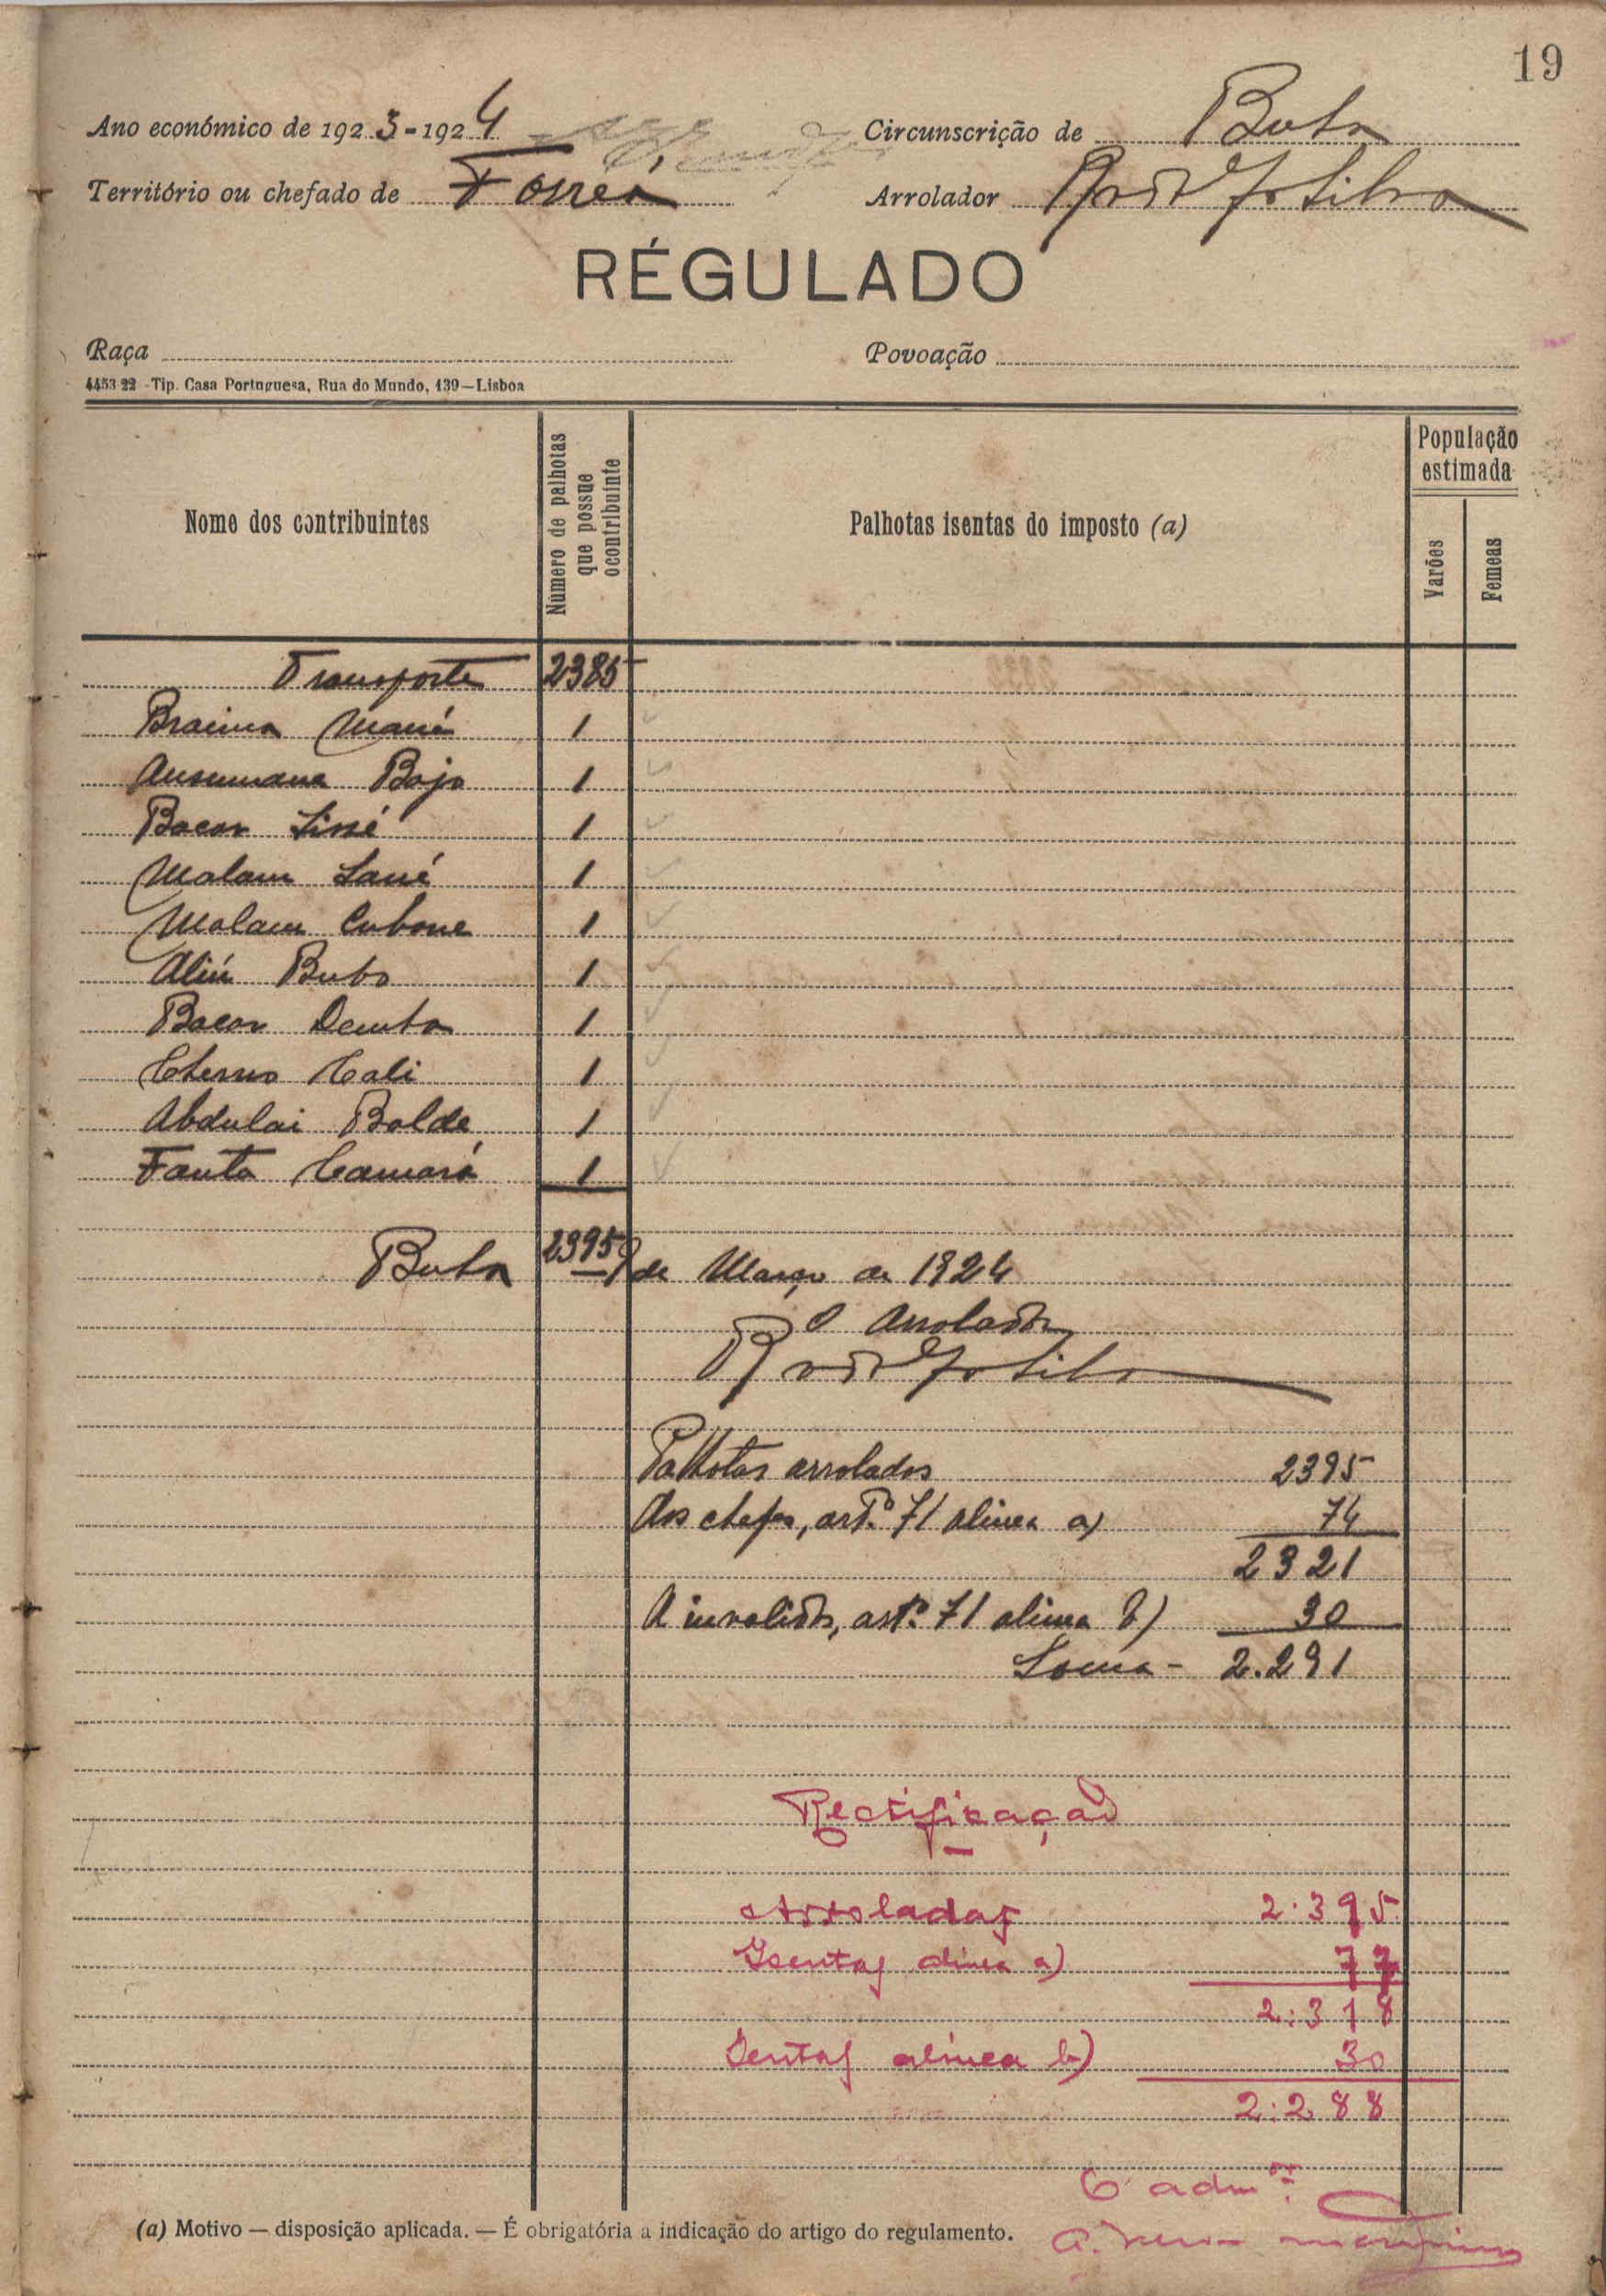 19
Ano económico de 1923-1924 Circunscrição de Buba
Território ou chefado de Forreá Arrolador
RÉGULADO
Raça Povoação
4453 22 - Tip. Casa Portuguesa, Rua do Mundo, 139—Lisboa
Nome dos contribuintes
Número de palhotas
que possue
o contribuinte
Palhotas isentas do imposto (a)
População
estimada
Varões
Femeas
Transporte 2385
Braima Mané 1
Ansumane Bajo 1
Bacar Sissé 1
Malam Sané 1
Malam Cubone 1
Aliú Bubo 1
Bacar Demba 1
Cherno Cali 1
Abdulai Balde 1
Fanta Camará 1
2395
Buba 9 de Março de 1924
O Arrolador
Palhotas arroladas 2395
Aos chefes, artº. 71 alinea a) 74
2321
A invalidos, artº. 71 alinea b) 30
Soma - 2.291
Rectificação
Arroladas 2.395
Isentas alinea a) 77
2:318
Isentas alinea b) 30
2:288
O admor.
(a) Motivo — disposição aplicada. — É obrigatória a indicação do artigo do regulamento.